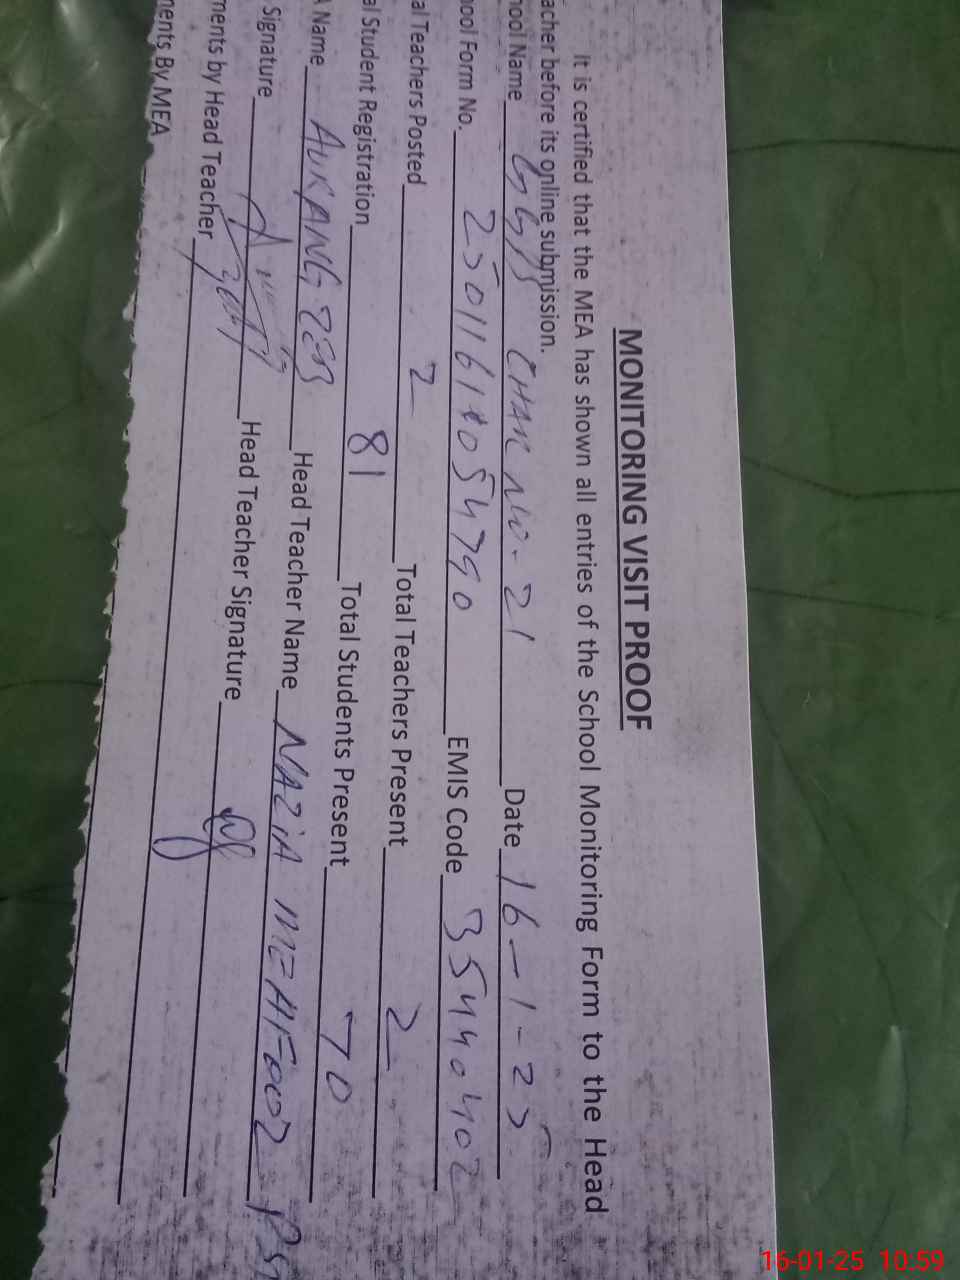 MONITORING VISIT PROOF
It is certified that the MEA has shown all entries of the School Monitoring Form to the Head
acher before its online submission.
hool Name CHAK NO. 21 Date 16-1-25
hool Form No. EMIS Code 35440402
al Teachers Posted 2 Total Teachers Present 2
al Student Registration 81 Total Students Present 70
A Name AURANGZEB Head Teacher Name NAZIA MEHFOOZ PST
Signature Head Teacher Signature
ments by Head Teacher
ments By MEA
16-01-25 10:59